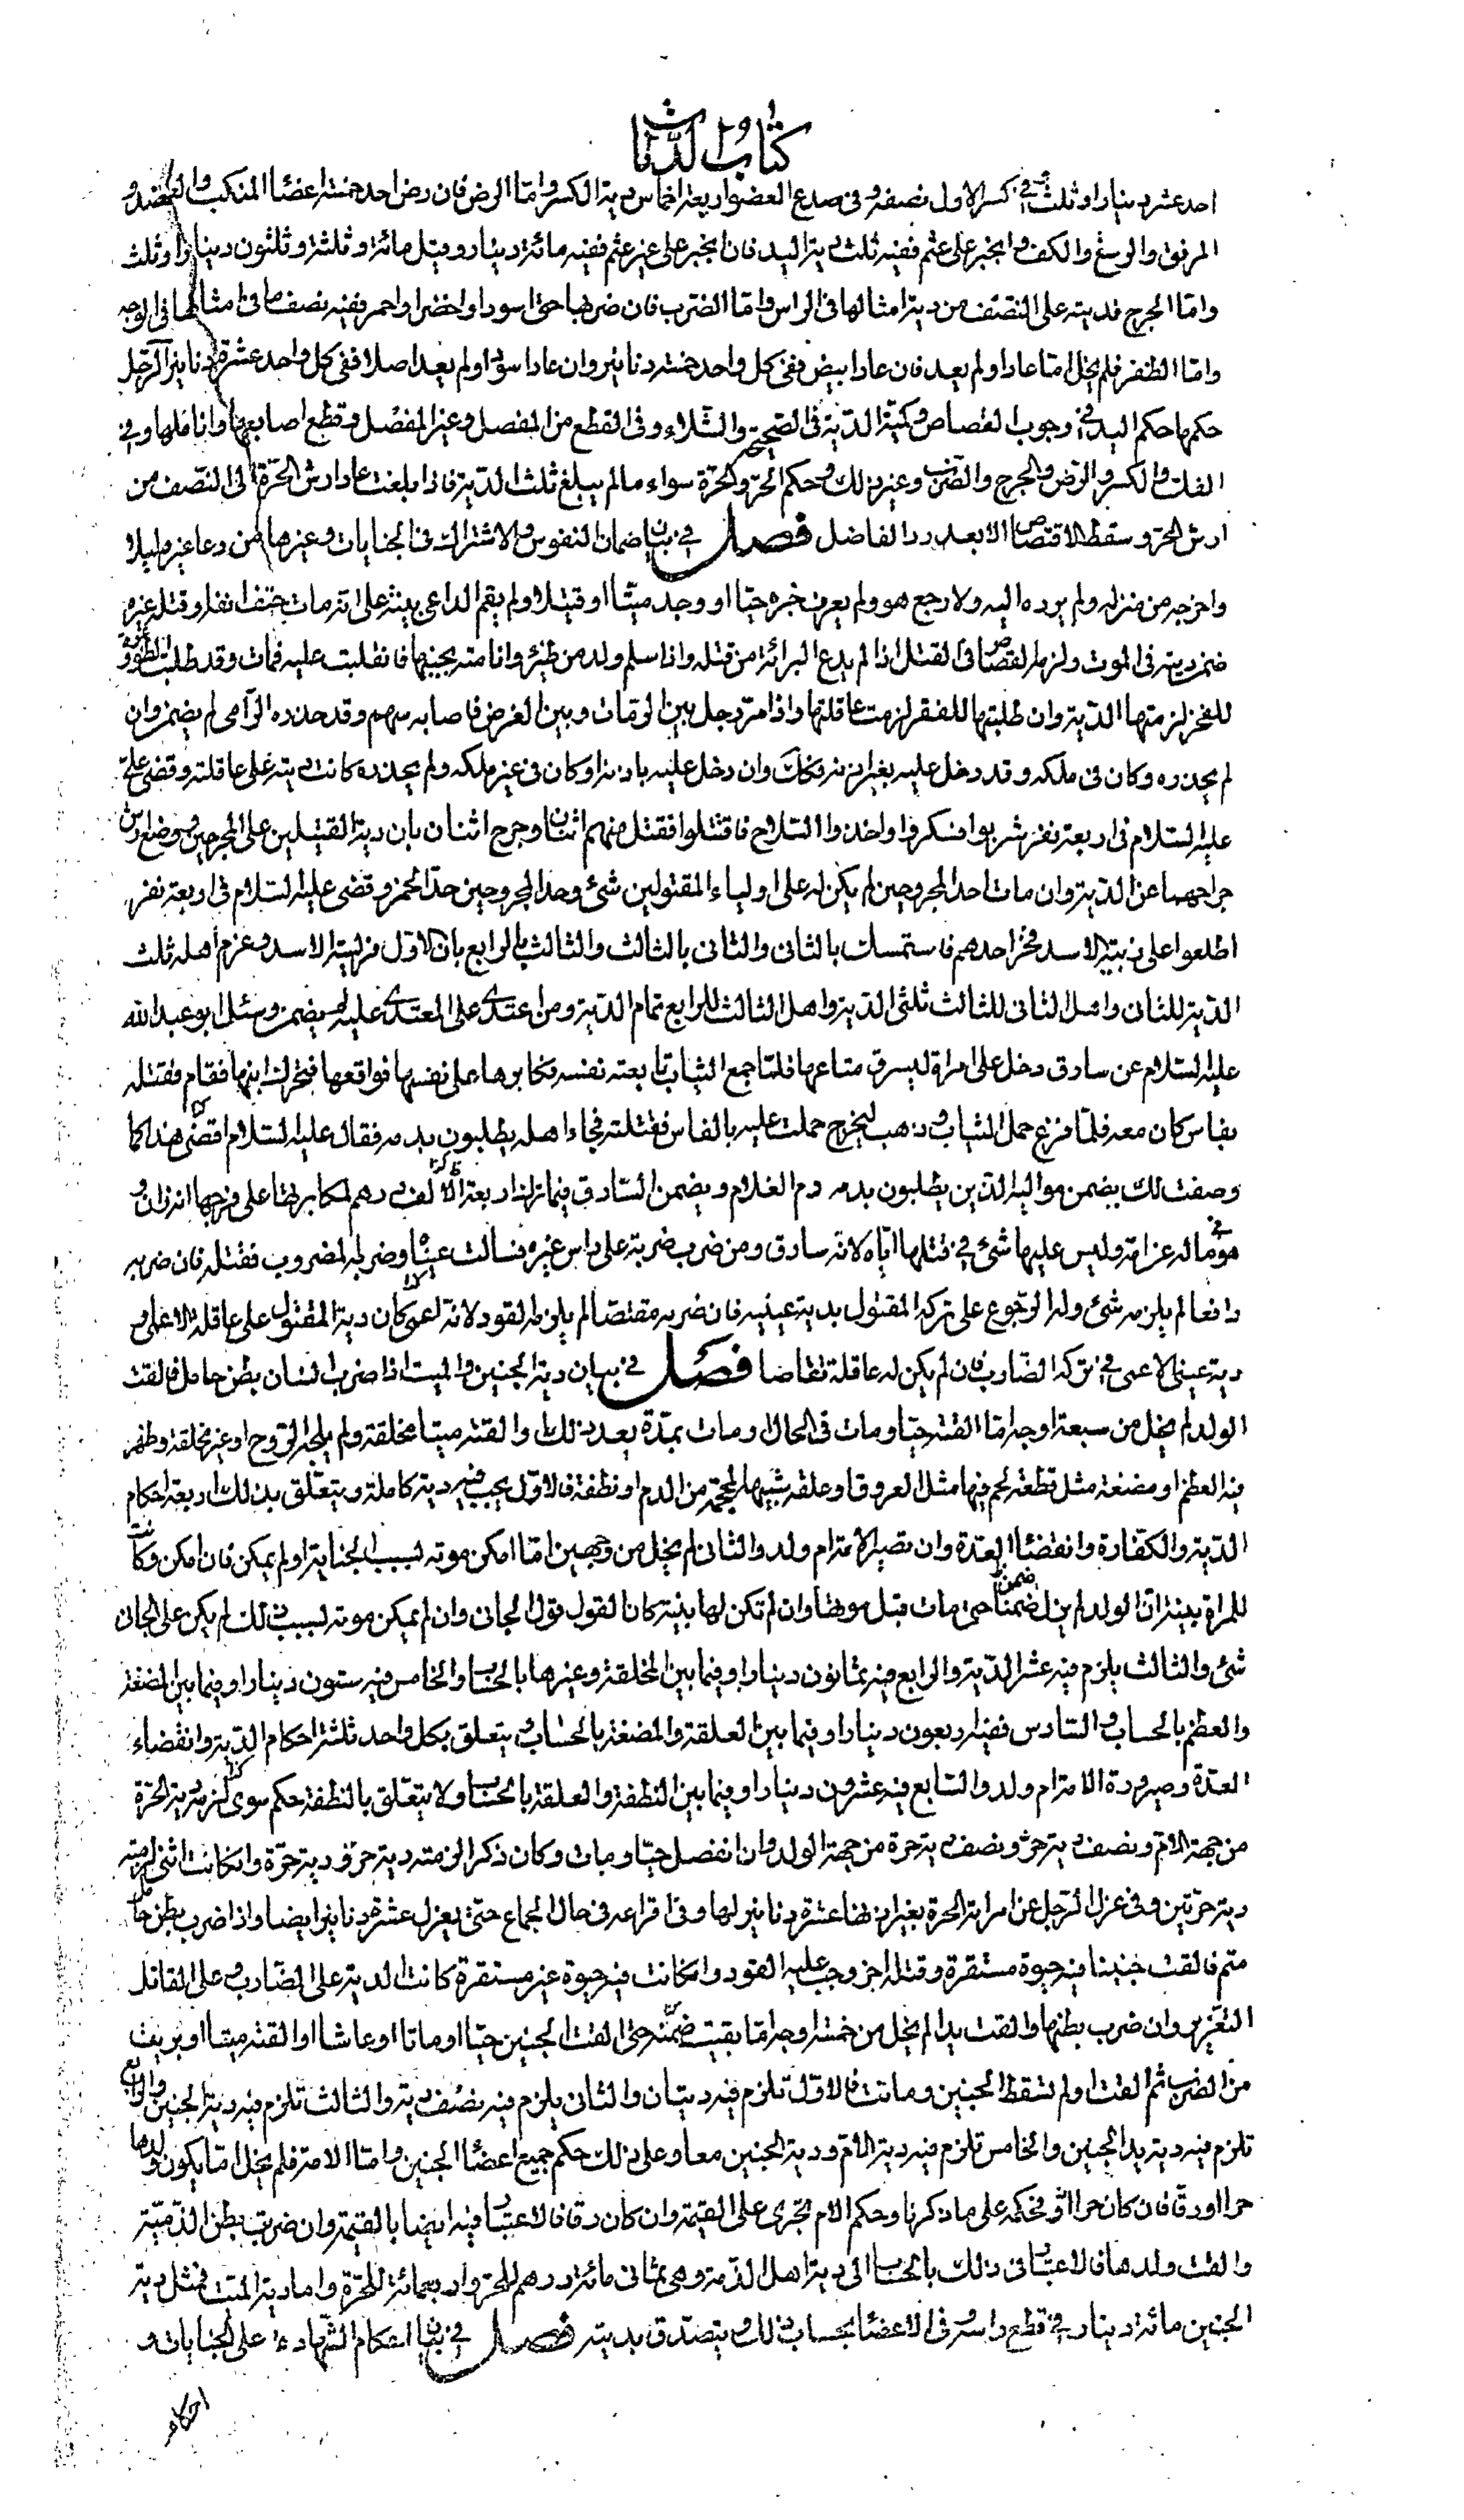 كتاب الديات
احد عشر دينارا وثلث وفي كسر الاول نصفه وفي صدع العضو اربعة اخماس دية الكسر واما الرض فان رض احد خمسة اعضاء المنكب والعضد و
المرفق والرسغ والكف وانجبر على عثم ففيه ثلث دية اليد فان انجبر على غير عثم ففيه مائة دينار وقيل مائة وثلثة وثلثون دينارا وثلث
واما الجرح فديته على النصف من دية امثالها في الراس واما الضرب فان ضربها حتى اسود او اخضر او احمر ففيه نصف ما في امثالها في الوجه
واما الظفر فلم يخل اما عاد او لم يعد فان عاد ابيض ففي كل واحد خمسة دنانير وان عاد اسود او لم يعد اصلا ففي كل واحد عشرة دنانير الرجل
حكمها حكم اليد في وجوب القصاص وكمية الدية في الصحيحة والشلاء وفي القطع من المفصل وغير المفصل وقطع اصابعها واناملها وفي
الفك والكسر والرض والجرح والضرب وغير ذلك وحكم الحر والحرة سواء ما لم يبلغ ثلث الدية فاذا بلغت عاد ارش الحرة الى النصف من
ارش الحر وسقط الاقتصاص الا بعد رد الفاضل فصل في بيان ضمان النفوس والاشتراك في الجنايات وغيرها من دعا غيره ليلا
واخرجه من منزله ولم يرده اليه ولا رجع هو ولم يعرف خبره حيا او وجد ميتا او قتيلا ولم يقم الداعي بينة على انه مات حتف انفه او قتله غيره
ضمن ديته في الموت ولزمه القصاص في القتل اذا لم يدع البرائة من قتله واذا سلم ولد من ظئر وانامته بجنبها فانقلبت عليه فمات وقد طلبت الظؤرة
للفخر لزمتها الدية وان طلبتها للفقر لزمت عاقلتها واذا مر رجل بين الرماة وبين الغرض فاصابه سهم وقد حذره الرامي لم يضمن وان
لم يحذره وكان في ملكه وقد دخل عليه بغير اذنه فكك وان دخل عليه باذنه او كان في غير ملكه ولم يحذره كانت ديته على عاقلته وقضى علي
عليه السلام في اربعة نفر شربوا فسكروا واخذوا السلاح فاقتتلوا فقتل منهم اثنان وجرح اثنان بان دية القتيلين على المجروحين ووضع ارش
جراحهما عن الدية وان مات احد المجروحين لم يكن له على اولياء المقتولين شئ وحد المجروحين حد الخمر وقضى عليه السلام في اربعة نفر
اطلعوا على زبية الاسد فخر احدهم فاستمسك بالثاني والثاني بالثالث والثالث بالرابع بان الاول فريسة الاسد وغرم اهله ثلث
الدية للثاني واهل الثاني للثالث ثلثي الدية واهل الثالث للرابع تمام الدية ومن اعتدى على المعتدى عليه لم يضمن وسئل ابو عبد الله
عليه السلام عن سارق دخل على امراة ليسرق متاعها فلما جمع الثياب تابعته نفسه فكابرها على نفسها فواقعها فتحرك ابنها فقام فقتله
بفاس كان معه فلما فرغ حمل الثياب وذهب ليخرج حملت عليه بالفاس فقتلته فجاء اهله يطلبون بدمه فقال عليه السلام اقض في هذا كما
وصفت لك يضمن مواليه الذين يطلبون بدمه دم الغلام ويضمن السارق فيما ترك اربعة الاف درهم لمكابرتها على فرجها انه زان و
هو في ماله غرامة وليس عليها شئ في قتلها اياه لانه سارق ومن ضرب ضربة على راس غيره فسالت عيناه وضربه المضروب فقتله فان ضربه
دافعا لم يلزمه شئ وله الرجوع على تركة المقتول بدية عينيه فان ضربه مقتصا لم يلزمه القود لانه اعمى كان دية المقتول على عاقلة الاعمى و
دية عيني الاعمى في تركة الضارب فان لم يكن له عاقلة تقاصا فصل في بيان دية الجنين والميت اذا ضرب انسان بطن حامل فالقت
الولد لم يخل من سبعة اوجه اما القته حيا ومات في الحال او مات بمدة بعد ذلك او القته ميتا مخلقة ولم يلجه الروح او غير مخلقة وظهر
فيه العظم او مضغة مثل قطعة لحم فيها مثل العروق او علقة شبيهة المحجمة من الدم او نطفة فالاول يجب فيه دية كاملة ويتعلق بذلك اربعة احكام
الدية والكفارة وانقضاء العدة وان تصير الامة ام ولد والثاني لم يخل من وجهين اما امكن موته بسبب الجناية او لم يمكن فان امكن وكانت
للمراة بينة ان الولد لم يزل ضمنا حتى مات قبل موتها وان لم تكن لها بينة كان القول قول الجاني وان لم يمكن موته لسبب ذلك لم يكن على الجاني
شئ والثالث يلزم فيه عشر الدية والرابع فيه ثمانون دينارا وفيما بين المخلقة وغيرها بالحساب والخامس فيه ستون دينارا وفيما بين المضغة
والعظم بالحساب والسادس ففيه اربعون دينارا وفيما بين العلقة والمضغة بالحساب ويتعلق بكل واحد ثلثة احكام الدية وانقضاء
العدة وصيرورة الامة ام ولد والسابع فيه عشرون دينارا وفيما بين النطفة والعلقة بالحساب ولا يتعلق بالنطفة حكم سوى لزم دية الحرة
من جهة الام ونصف دية حر ونصف دية حرة من جهة الولد وان انفصل حيا ومات وكان ذكرا لزمته دية حر ودية حرة وان كانت انثى لزمته
دية حرتين وفي عزل الرجل عن امراته الحرة بغير اذنها عشرة دنانير لها وفي افزاعه في حال الجماع حتى يعزل عشرة دنانير ايضا واذا ضرب بطن حامل
متم فالقت جنينا فيه حيوة مستقرة وقتله اخر وجب عليه القود وان كانت فيه حيوة غير مستقرة كانت الدية على الضارب وعلى القاتل
التعزير وان ضرب بطنها والقت يدا لم يخل من خمسة اوجه اما بقيت ضمنة حتى القت الجنين حيا او ماتا او عاشا او القته ميتا او بريت
من الضرب ثم القت او لم تسقط الجنين وماتت فالاول تلزم فيه ديتان والثاني يلزم فيه نصف دية والثالث تلزم فيه دية الجنين والرابع
تلزم فيه دية يد الجنين والخامس تلزم فيه دية الام ودية الجنين معا وعلى ذلك حكم جميع اعضاء الجنين واما الامة فلم يخل اما يكون ولدها
حرا او رقا فان كان حرا فحكمه على ما ذكرنا وحكم الام تجري على القيمة وان كان رقا فالاعتبار فيه ايضا بالقيمة وان ضرب بطن الذمية
والقت ولدها فالاعتبار في ذلك بالحساب الى دية اهل الذمة وهي ثماني مائة درهم للحر واربعمائة للحرة واما دية الميت فمثل دية
الجنين مائة دينار في قطع راسه وفي الاعضاء بحساب ذلك ويتصدق بديته فصل في بيان احكام الشهادة على الجنايات و
احكام